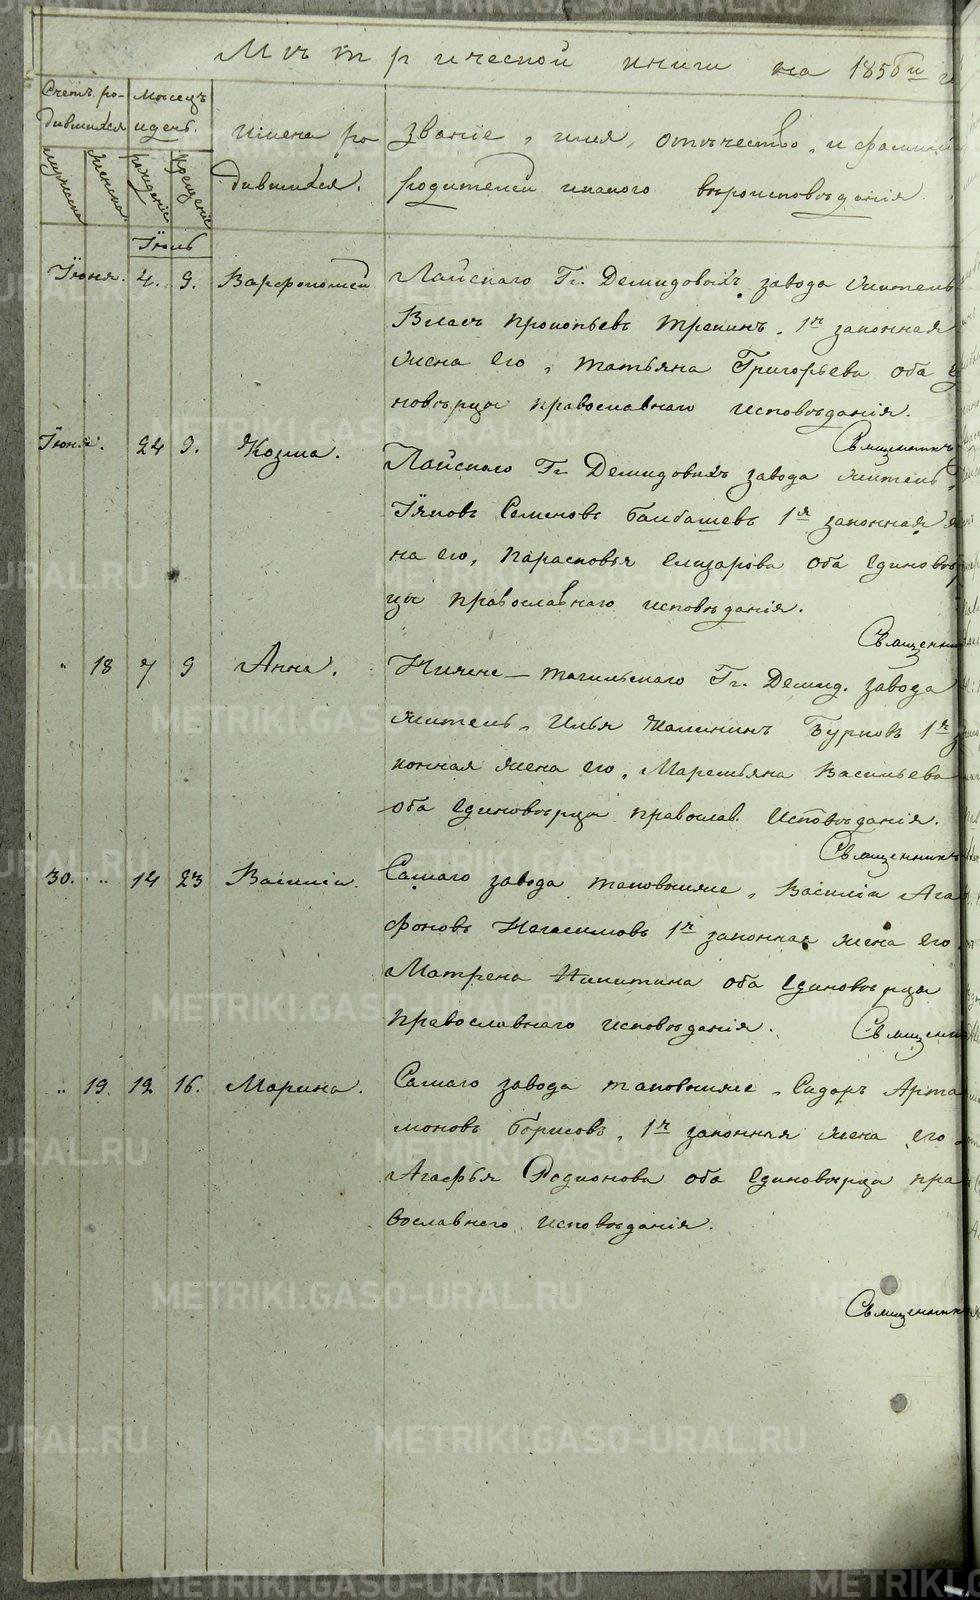 Метрической книги на 1856й
Счетъ ро- Месяцъ
дившихся и день. Имена ро звание, имя, отъчество, и фамилия
мужеска женска рождение крещение дившихся. родителей и какого въроисповъдания
Июль
Июня. 4. 9. Варфоломей Лайскаго Гг. Демидовыхъ завода житель
Власъ Прокопьевъ Трепинъ, 1я законная
жена его, Татьяна Григорьева оба е
новърцы православнаго исповъдания.
Священникъ
Июня. 24 9. Козма. Лайскаго Гг Демидовыхъ завода житель,
Іяковъ Семеновъ Балбашевъ 1я законная
на его, Парасковья Елизарова оба единовър
цы православнаго исповъдания.
Священни
" 18 7 9 Анна. Нижне-тагильскаго Гг. Демид. завода
житель, Илья Калининъ Бурковъ 1я за
конная жена его, Маремьяна Васильева
оба единовърцы православ. Исповъдания.
Священникъ
30. " 14 23 Василии. Самаго завода таковыиже, Василии Ага
фоновъ 1я законная жена его
Матрена Никитина оба единовърцы
православнаго исповъдания. Священни
" 19. 12 16. Марина. Самаго завода таковыиже, Сидоръ Арта
моновъ Борисовъ, 1я законная жена его,
Агафья Родионова оба единовърцы пра
вославнего исповъдания.
Священникъ
METRIKI.GASO-URAL.RU